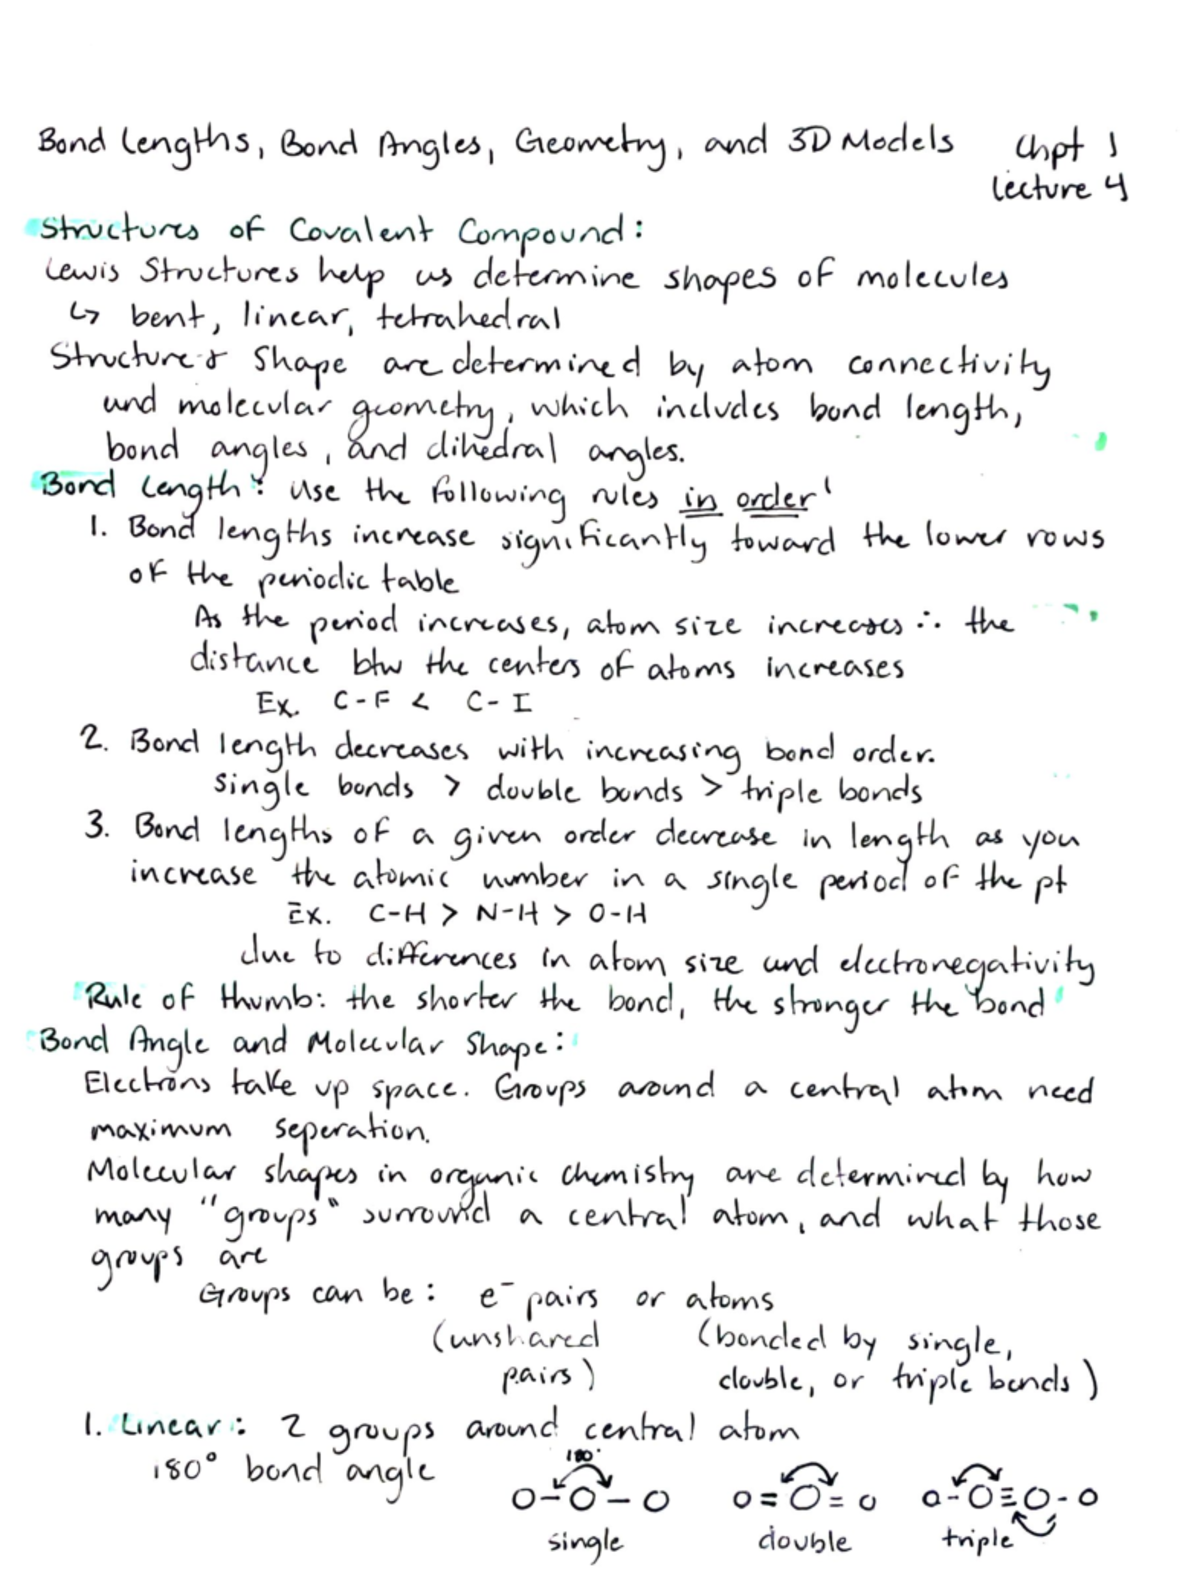 Bond Lengths, Bond Angles, Geometry, and 3D Models Chpt 1
Lecture 4
Structures of Covalent Compound:
Lewis Structures help us determine shapes of molecules
↳ bent, linear, tetrahedral
Structure & Shape are determined by atom connectivity
and molecular geometry, which includes bond length,
bond angles, and dihedral angles.
Bond Length: Use the following rules in order!
1. Bond lengths increase significantly toward the lower rows
of the periodic table
As the period increases, atom size increases ∴ the
distance btw the centers of atoms increases
Ex. C-F < C-I
2. Bond length decreases with increasing bond order.
Single bonds > double bonds > triple bonds
3. Bond lengths of a given order decrease in length as you
increase the atomic number in a single period of the pt
Ex. C-H > N-H > O-H
due to differences in atom size and electronegativity
Rule of thumb: the shorter the bond, the stronger the bond
Bond Angle and Molecular Shape:
Electrons take up space. Groups around a central atom need
maximum seperation.
Molecular shapes in organic chemistry are determined by how
many "groups" surround a central atom, and what those
groups are
Groups can be: e⁻ pairs or atoms
(unshared (bonded by single,
pairs) double, or triple bonds)
1. Linear: 2 groups around central atom
180° bond angle
180°
O-O-O O=O=O O-O≡O-O
single double triple